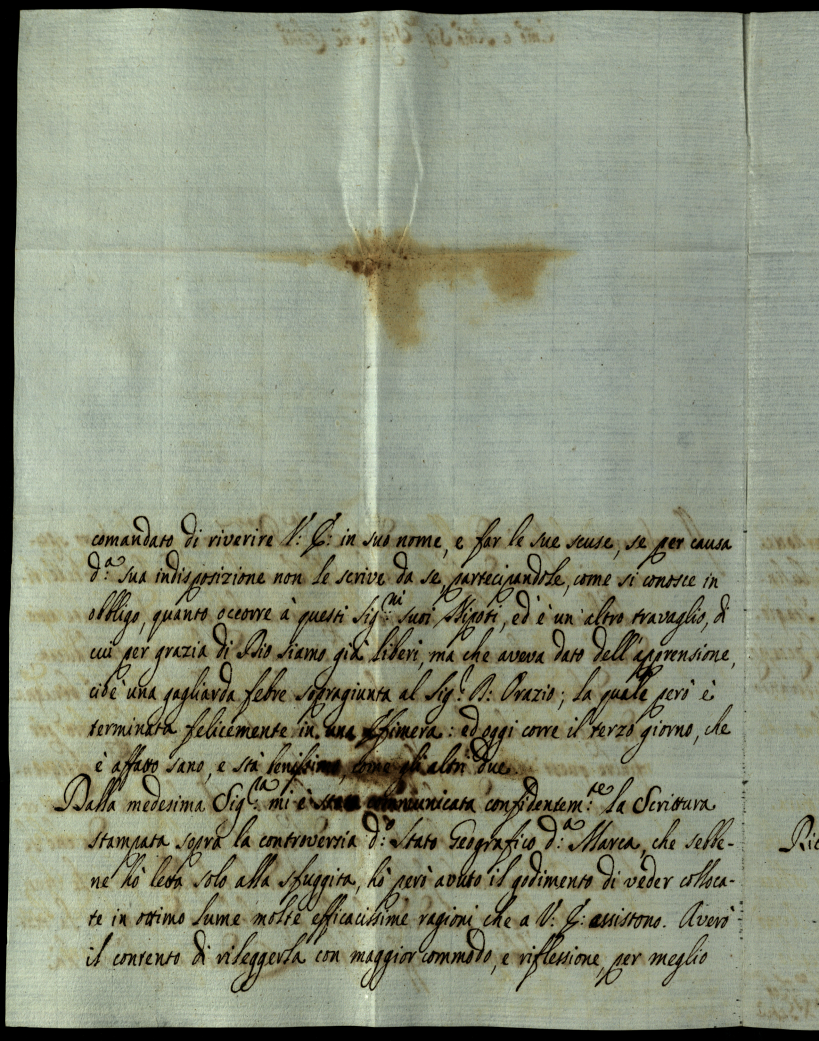 comandato di riverire V: E: in suo nome, e far le sue scuse, se per causa
d:ª sua indisposizione non le scrive da se, partecipandole, come si conosce in
obbligo, quanto occorre à questi Sig:ni suoi Nipoti, ed è un altro travaglio, di
cui per grazia di Dio siamo già liberi, ma che aveva dato dell'apprensione,
cioè una gagliarda febre sopragiunta al Sig:r D: Orazio; la quale però è
terminata felicemente in una Effimera: ed oggi corre il terzo giorno, che
è affatto sano, e stà benissimo, come gli altri due.
Dalla medesima Sig:ra mi è stata communicata confidentem:te la Scrittura
stampata sopra la controversia d:o Stato Geografico d:ª Marca, che sebbe-
ne hò letta solo alla sfuggita, hò però avuto il godimento di veder colloca-
te in ottimo lume molte efficacissime ragioni che a V: E: assistono. Averò
il contento di rileggerla con maggior commodo, e riflessione, per meglio
Ric